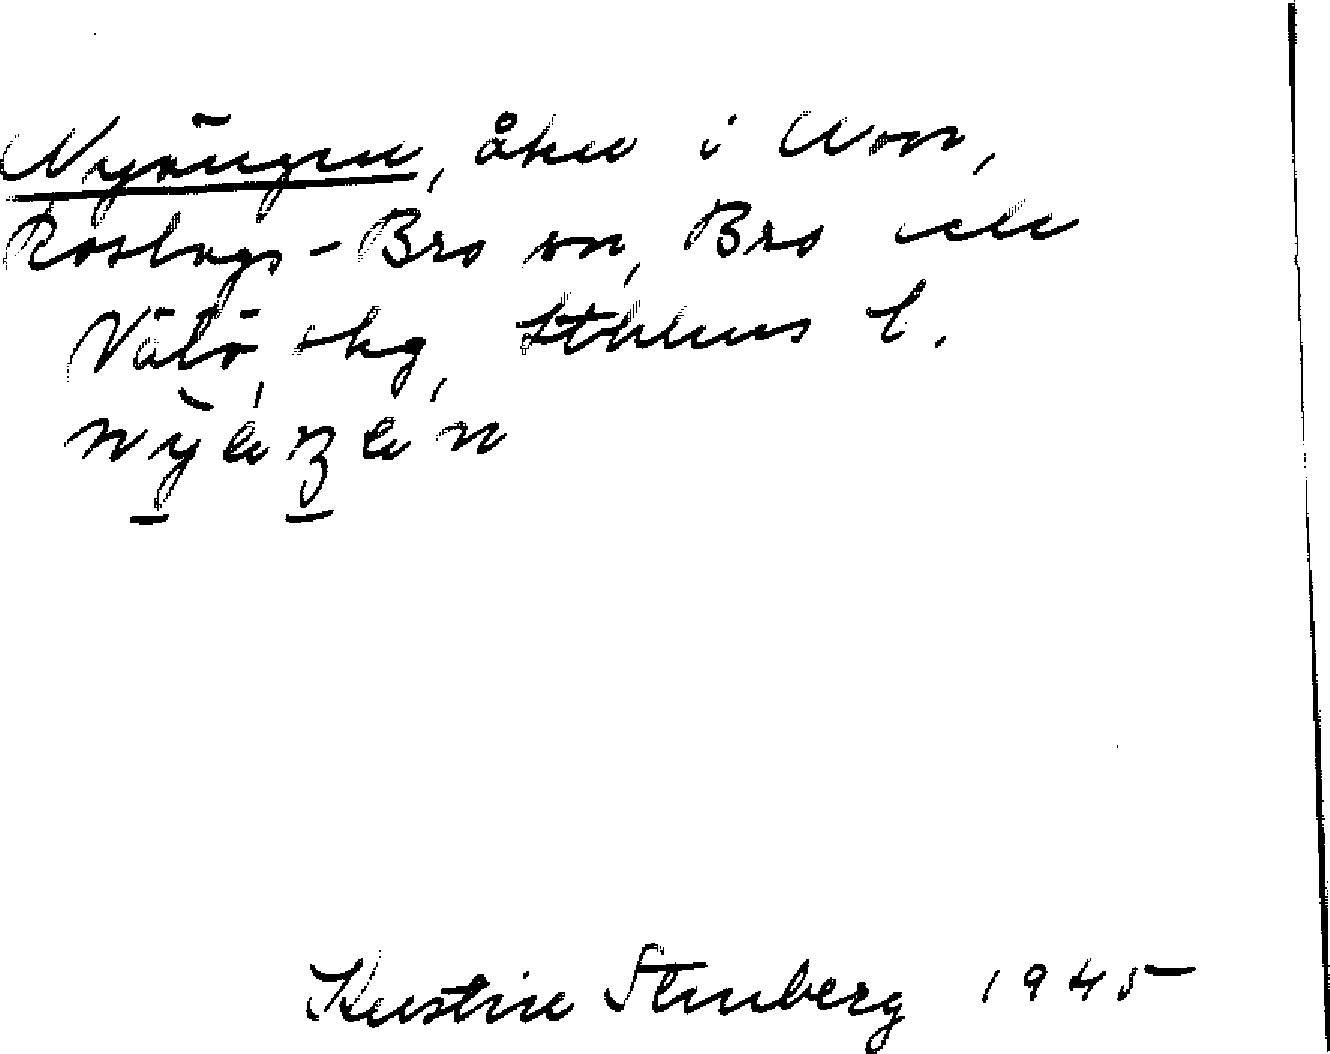 Nyängen, åker i
Roslags-Bro sn, Bro och
Vätö skg, Sthlms l.
Kerstin Stenberg 1945